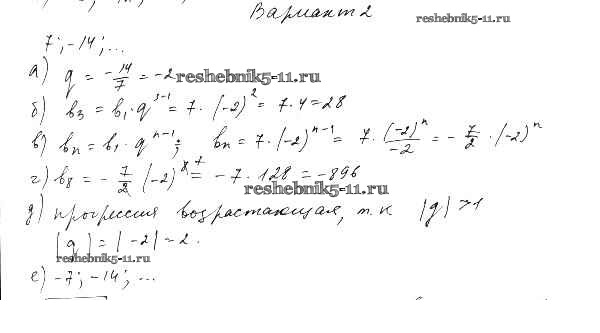 Вариант 2
reshebnik5-11.ru
7; -14; ...
а) q = -14/7 = -2
reshebnik5-11.ru
б) b₃ = b₁ · q³⁻¹ = 7 · (-2)² = 7 · 4 = 28
в) bₙ = b₁ · qⁿ⁻¹; bₙ = 7 · (-2)ⁿ⁻¹ = 7 · (-2)ⁿ/-2 = -7/2 · (-2)ⁿ
г) b₈ = -7/2 (-2)⁸ = -7 · 128 = -896
reshebnik5-11.ru
д) прогрессия возрастающая, т.к |q| > 1
|q| = |-2| = 2.
reshebnik5-11.ru
е) -7; -14; ...